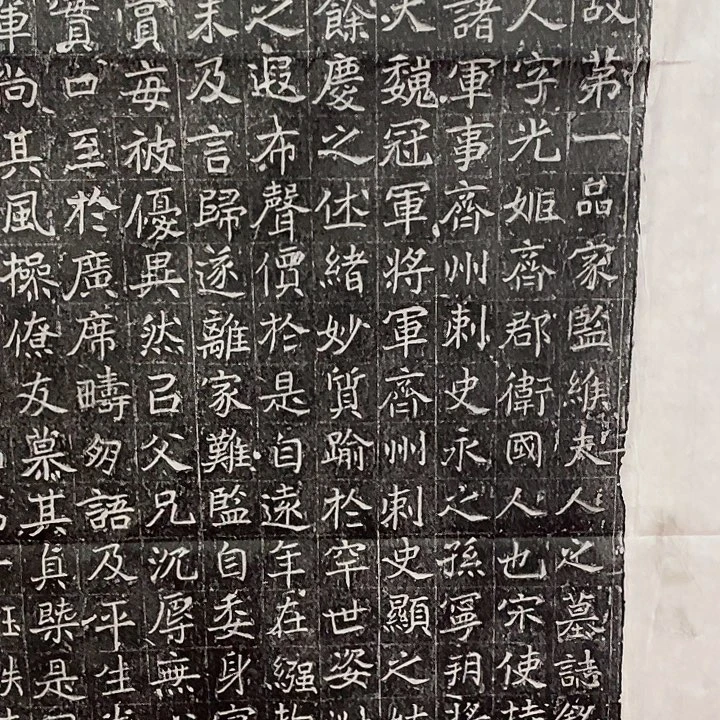 故第一品家監緱夫人之墓誌銘
人字光姬齊郡衛國人也宋使持
諸軍事齊州刺史永之孫寧朔將
大魏冠軍將軍齊州刺史顯之
餘慶之休緒妙質踰於罕世姿
之遐布聲價於是自遠年在繈
未及言歸遂離家難監自委身宮
賞每被優異然㠯父兄沉辱無
口至於廣席疇語及平生
尚其風操僚友慕其真槩是